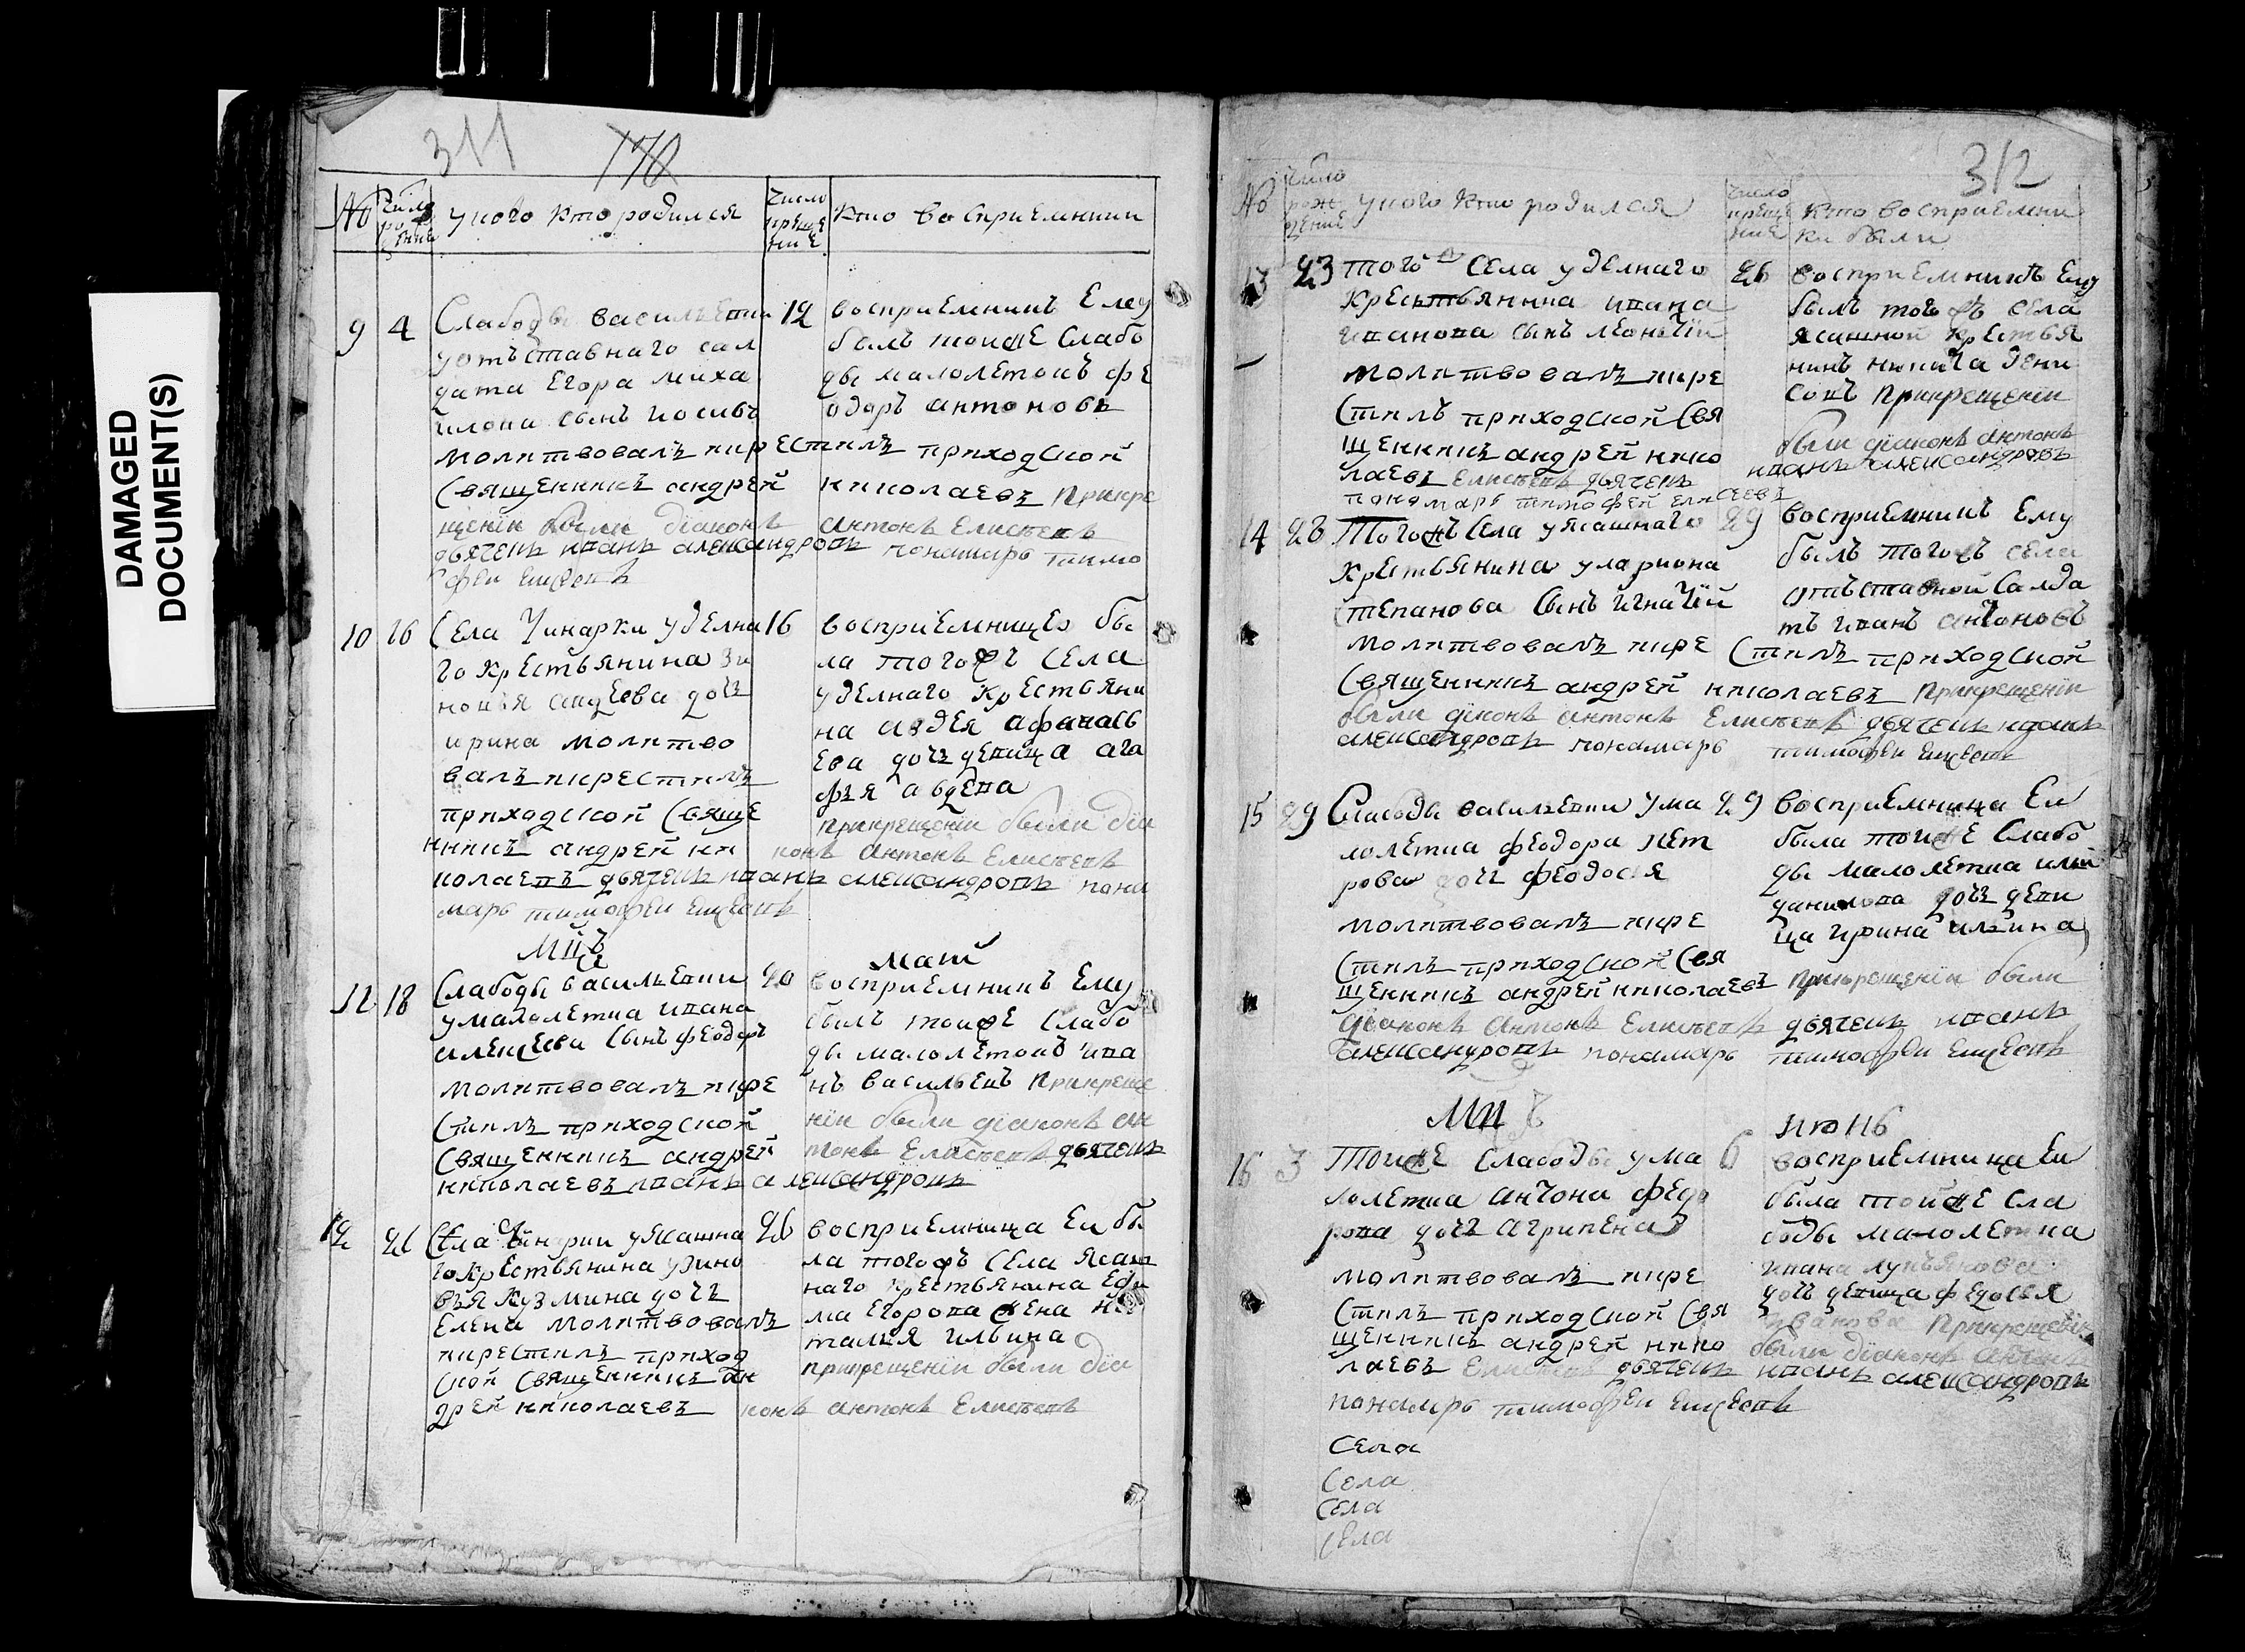 DAMAGED
DOCUMENT(S)
311
№
число рождение
у кого кто родился
число крещение
кто восприемники
9 4
Слабоды василъевки
уотъставнаго сал
дата Егора миха
илова сынъ иосивъ
молитвовалъ икрестилъ приходской
священникъ андрей николаевъ прикре
щенiи были дiаконъ антонъ Елисѣевъ
дьячекъ иванъ александровъ понамарь тимо
фѣи елисеевъ
12
восприемникъ Ему
былъ тоиже Слабо
ды малолѣтокъ фе
одоръ антоновъ
10 16
Села Чинарки уделна
го крестьянина зи
новья авдеева дочъ
ирина молитво
валъ икрестилъ
приходской свяще
нникъ андрей ни
колаевъ дьячекъ иванъ александровъ пона
марь тимофѣи елисеевъ
16
восприемницею бы
ла тогожъ села
уделнаго крестьяни
на авдея афанась
ева дочъ девица ага
фья авдеева
прикрещенiи были дiа
конъ антонъ Елисѣевъ
мцъ
маiй
11 18
Слабоды василъевки
умалолетка ивана
алексеева сынъ феодоръ
молитвовалъ икре
стилъ приходской
священникъ андрей
николаевъ иванъ александровъ
20
восприемникъ Ему
былъ тоиже слабо
ды малолѣтокъ ива
нъ васильевъ прикреще
нiи были дiаконъ ан
тонъ Елисѣевъ дьячекъ
12 26
Села чинарки уясашна
го крестьянина узино
вья кузмина дочъ
Елена молитвовалъ
икрестилъ приход
ской священникъ ан
дрей николаевъ
26
восприемница Еи бы
ла тогожъ села ясаш
наго крестьянина Ефи
ма Егорова жена на
талья ильина
прикрещенiи были дiа
конъ антонъ Елисѣевъ
312
№
число рождение
у кого кто родился
число крещение
кто восприемни
ки были
13 23
тогожъ села уделнаго
крестьянина ивана
иванова сынъ леонътiи
молитвовалъ икре
стилъ приходской свя
щенникъ андрей нико
лаевъ Елисѣевъ дьячекъ
понамарь тимофѣй елисеевъ
26
восприемникъ Ему
былъ тогожъ села
ясашной крестья
нинъ никита дени
совъ прикрещенiи
были дiаконъ антонъ
иванъ александровъ
14 28
Тогожъ села уясашнаго
крестьянина улариона
степанова сынъ игнатiй
молитвовалъ икре стилъ приходской
священникъ андрей николаевъ прикрещенiи
были дiконъ антонъ Елисѣевъ дьячекъ иванъ
александровъ понамарь тимофѣи елисеевъ
29
восприемникъ Ему
былъ тогожъ села
отъставной салда
тъ иванъ антоновъ
15 29
Слабоды василъевки ума
лолетка феодора пет
рова дочъ феодосья
молитвовалъ икре
стилъ приходской свя
щенникъ андрей николаевъ прикрещенiи были
дiаконъ антонъ Елисѣевъ дьячекъ иванъ
александровъ понамарь тимофѣи елисеевъ
29
восприемница Еи
была тоиже слабо
ды малолетка ильи
данилова дочъ деви
ца ирина ильина
мцъ
июнь
16 3
Тоиже слабоды ума
лолетка антона федо
рова дочъ агрипена
молитвовалъ икре
стилъ приходской свя
щенникъ андрей нико
лаевъ Елисѣевъ дьячекъ иванъ александровъ
понамарь тимофѣи елисеевъ
6
восприемница Еи
была тойже сла
боды малолетка
ивана лукьянова
дочъ девица федосья
иванова прикрещенiи
были дiаконъ антонъ
Села
Села
Села
Села